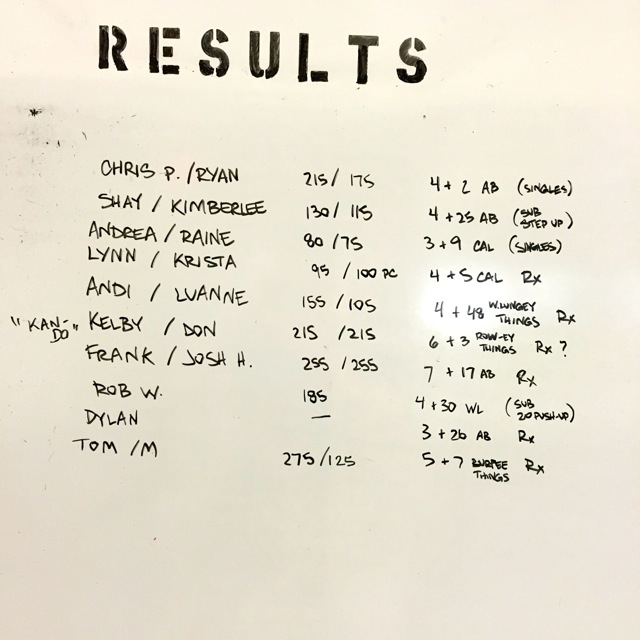 RESULTS
CHRIS P. / RYAN 215 / 175 4 + 2 AB (SINGLES)
SHAY / KIMBERLEE 130 / 115 4 + 25 AB (SUB STEP UP)
ANDREA / RAINE 80 / 75 3 + 9 CAL (SINGLES)
LYNN / KRISTA 95 / 100 PC 4 + 5 CAL Rx
ANDI / LUANNE 155 / 105 4 + 48 W.LUNGEY THINGS Rx
"KAN-DO" KELBY / DON 215 / 215 6 + 3 ROW-EY THINGS Rx ?
FRANK / JOSH H. 255 / 255 7 + 17 AB Rx
ROB W. 185 4 + 30 WL (SUB 20 PUSH-UP)
DYLAN — 3 + 26 AB Rx
TOM / M 275 / 125 5 + 7 BURPEE THINGS Rx